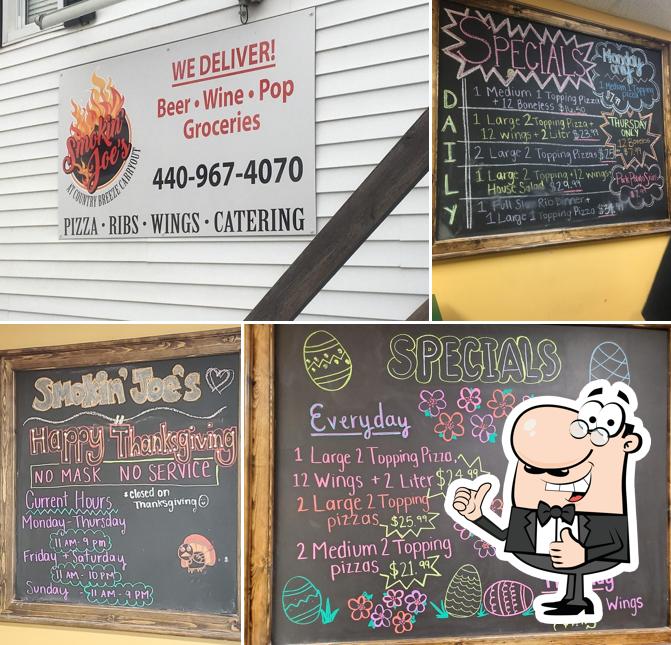 WE DELIVER!
Beer • Wine • Pop
Groceries
Smokin' Joe's
AT COUNTRY BREEZE CARRYOUT
440-967-4070
PIZZA • RIBS • WINGS • CATERING
SPECIALS
DAILY
1 Medium 1 Topping Pizza
+ 12 Boneless $16.50
1 Large 2 Topping Pizza +
12 Wings + 2 Liter $23.99
2 Large 2 Topping Pizzas $25
1 Large 2 Topping + 12 wings
House Salad $29.99
1 Full Slab Rib Dinner +
1 Large 1 Topping Pizza
Monday only
1 Medium 1 Topping
THURSDAY
ONLY
12 Boneless
Smokin' Joe's
Happy Thanksgiving
NO MASK NO SERVICE
Current Hours
*closed on
Thanksgiving
Monday-Thursday
11 AM - 9 PM
Friday + Saturday
11 AM - 10 PM
Sunday - 11 AM - 9 PM
SPECIALS
Everyday
1 Large 2 Topping Pizza,
12 Wings + 2 Liter $24.99
2 Large 2 Topping
pizzas $25.99
2 Medium 2 Topping
pizzas $21.99
Wings